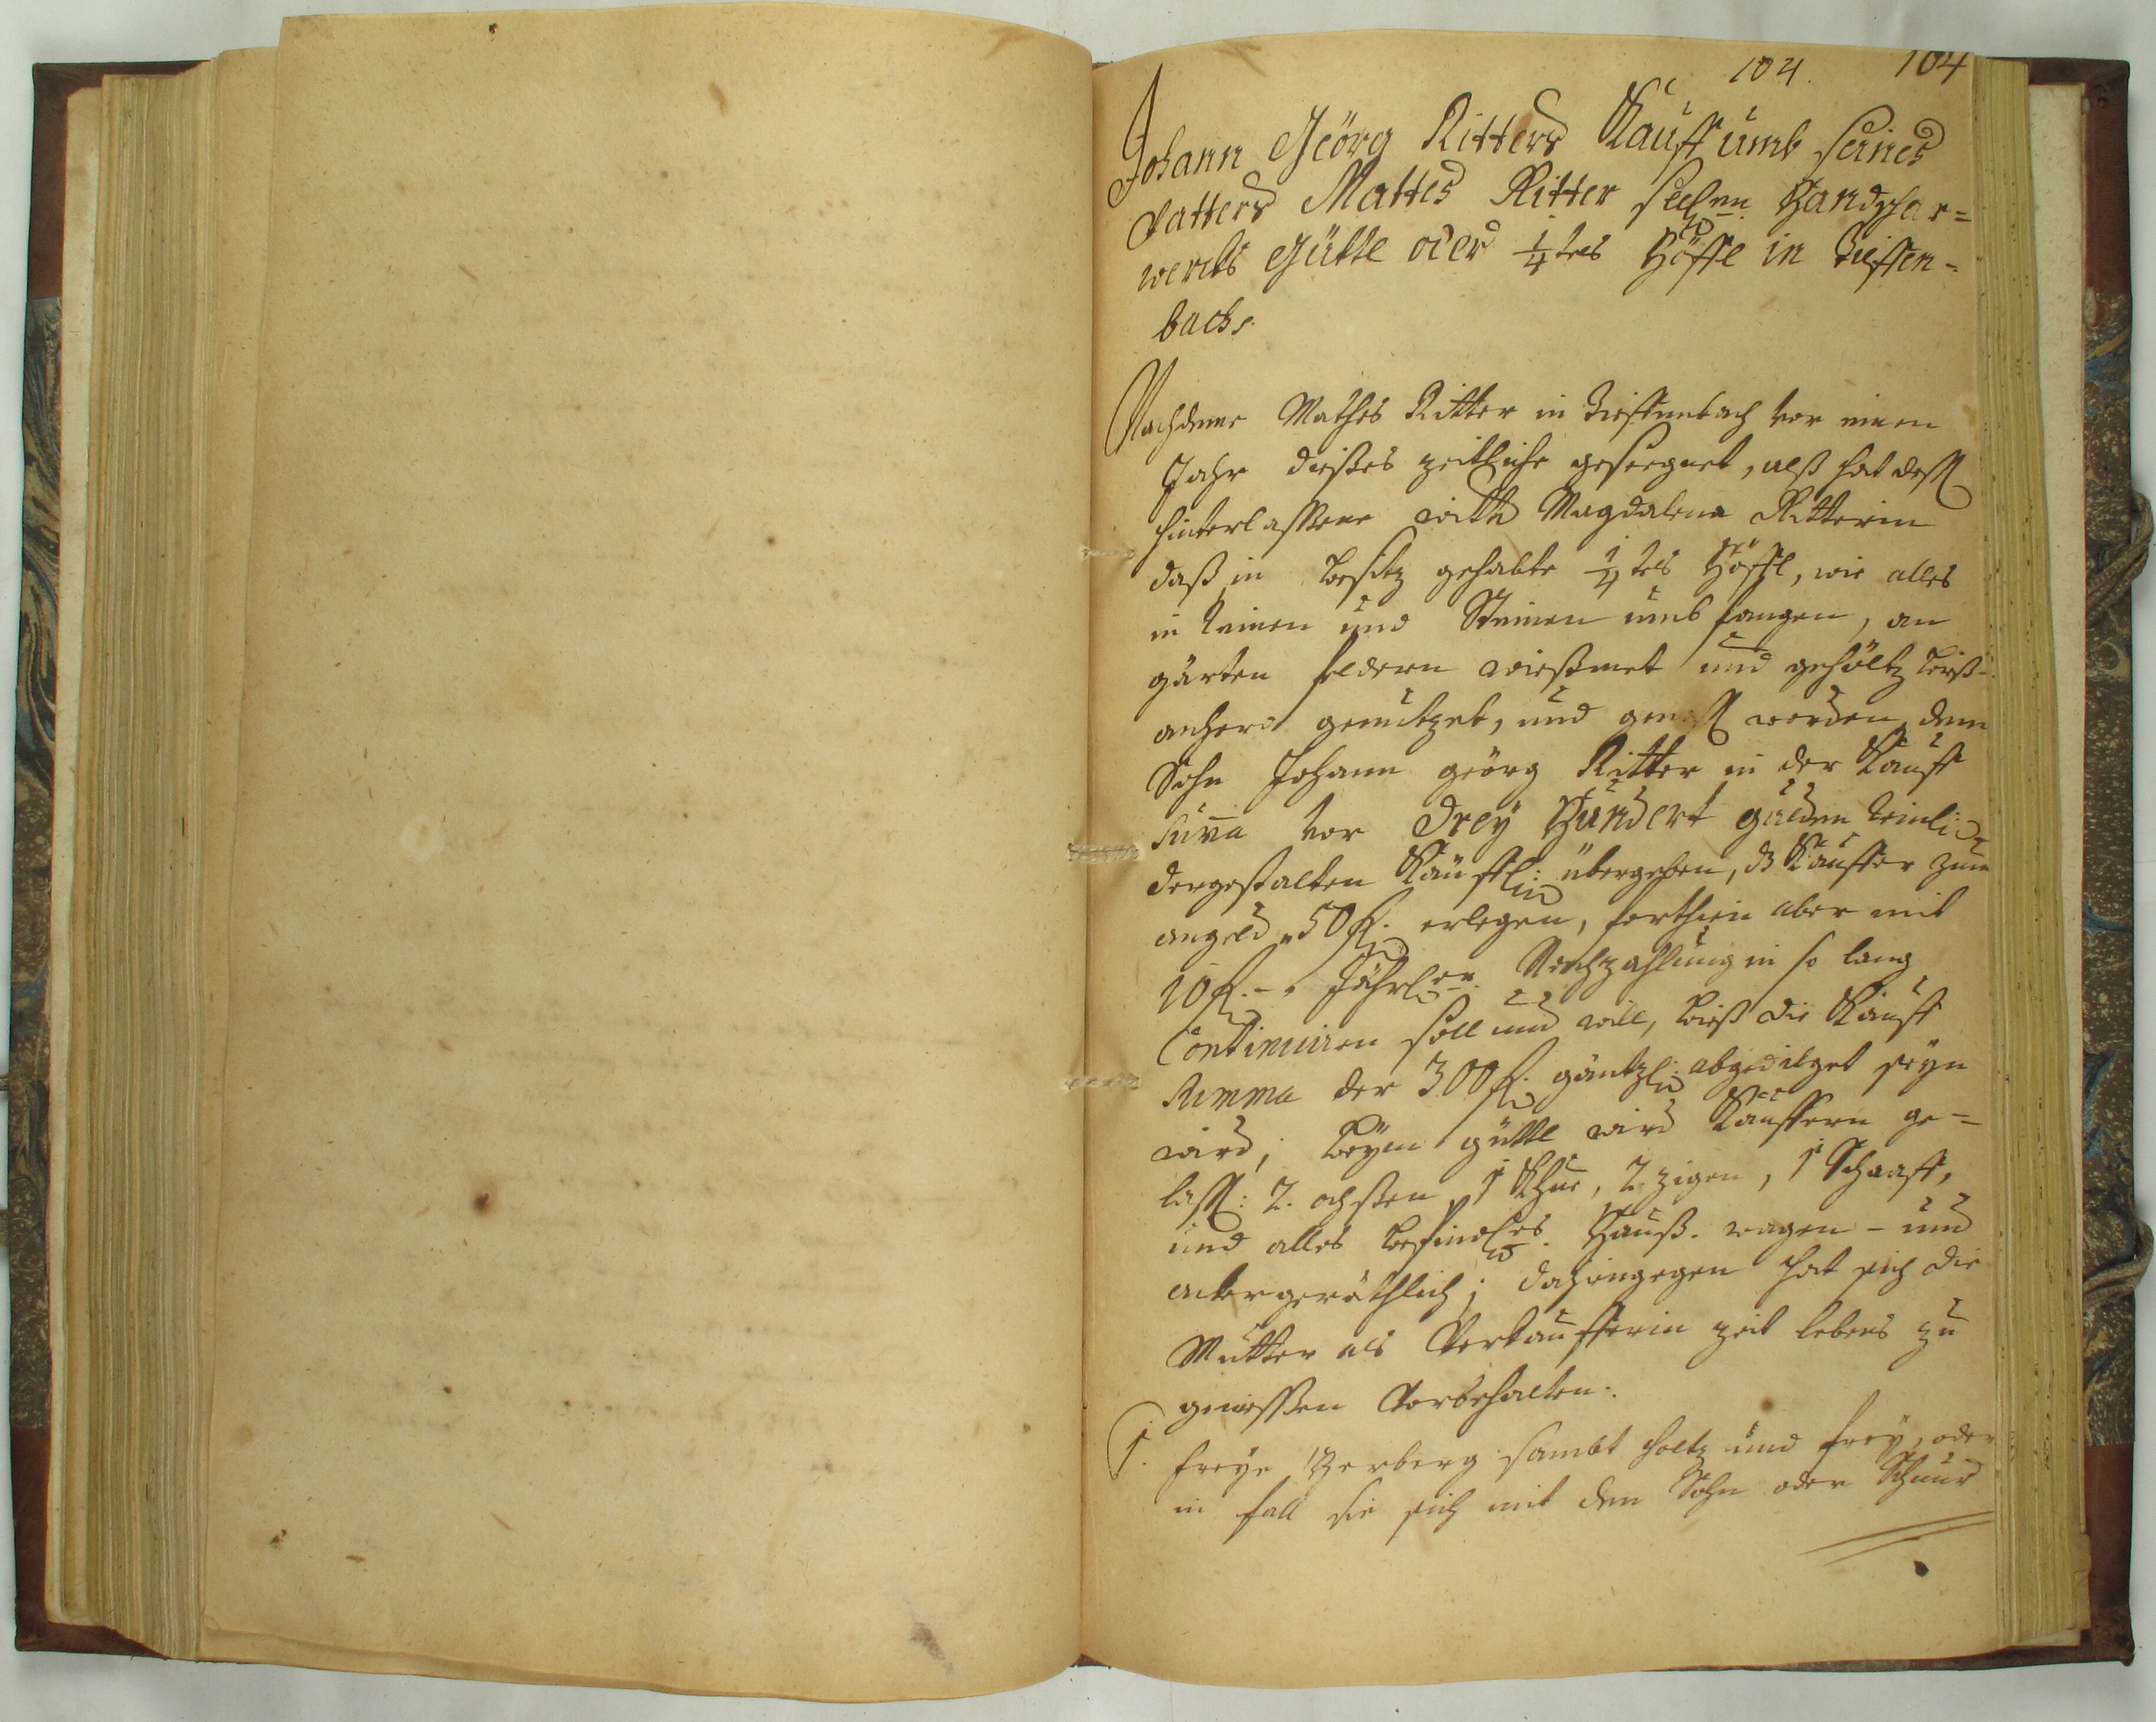 104. 104
Johann Geörg Ritters Kauff umb seines
Vatters Mattes Ritter seel:en Handschar=
wercks Güttl oder 1/4tes Höffl in Tieffen=
bach.
Nachdeme Mathes Ritter in Tieffenbach vor einem
Jahr dießes zeitliche geseegnet, alß hat dess
hinterlassene wittib Magdalena Ritterin
daß in besitz gehabte 1/4tes Höffl, wie alles
in Reinen und Steinen umbfangen, an
gärten feldern wießmet und gehöltz bieß-
anhero genutzet, und genoss worden, dem
Sohn Johann geörg Ritter in der Kauff
Suma vor Drey Hundert gulden
dergestalten Käuffl: übergeben, dz Kauffer zum
angeld 50 fl. erlegen, forthin aber mit
10 fl. - Jährl:er Nachzahlung in so lang
Continuiren soll und will, bieß die Kauff
Summa der 300 fl. gäntzl: abgedilget seyn
wird, beym güttl wird Kauffern ge=
lass: 2. ochßen, 1 Khue, 2 zigen, 1 Schaaff,
und alles befindl:es Hauß- wagen- und
ackergeräthlich; dahingegen hat sich die
Mutter als Verkaufferin zeit lebens zu
geniessen Vorbehalten:.
1. freye Herberg sambt holtz und frey, oder
in fall sie sich mit dem Sohn oder Schnur